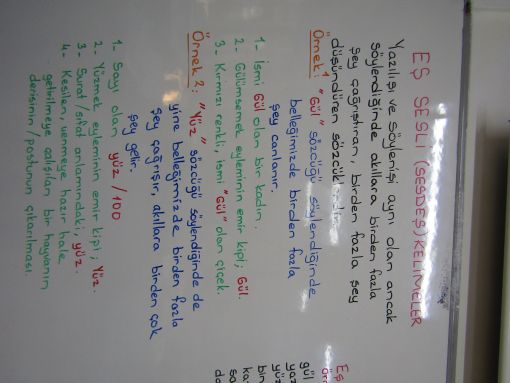 EŞ SESLİ (SESDEŞ) KELİMELER
Yazılışı ve söylenişi aynı olan ancak
söylendiğinde akıllara birden fazla
şey çağrıştıran, birden fazla şey
düşündüren sözcüklerdir.
Örnek 1: "Gül" sözcüğü söylendiğinde
belleğimizde birden fazla
şey canlanır.
1- İsmi Gül olan bir kadın.
2- Gülümsemek eyleminin emir kipi; Gül.
3- Kırmızı renkli, ismi "Gül" olan çiçek.
Örnek 2: "Yüz" sözcüğü söylendiğinde de
yine belleğimizde birden fazla
şey çağrışır, akıllara birden çok
şey gelir.
1- Sayı olan yüz / 100
2- Yüzmek eyleminin emir kipi; Yüz.
3- Surat/sıfat anlamındaki, yüz.
4- Kesilen, yenmeye hazır hale
getirilmeye çalışılan bir hayvanın
derisinin/postunun çıkarılması.
Eş
gül
yaz
yüz
bin